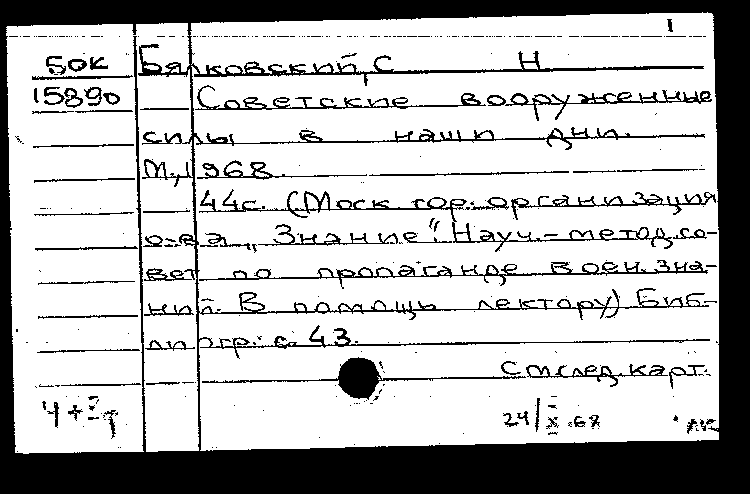 1
50К Бялковский, С Н
15890 Советские вооруженные
силы в наши дни.
М., 1968.
44с. (Моск. гор. организация
о-ва „Знание". Науч.-метод. со-
вет по пропаганде воен. зна-
ний. В помощь лектору) Биб-
лиогр.: с. 43.
См след. карт.
24/X-68